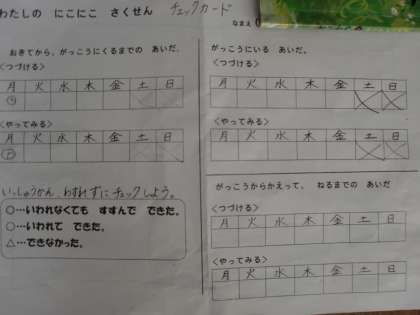 わたしの にこにこ さくせん チェックカード
なまえ
おきてから、がっこうにくるまでの あいだ。
＜つづける＞
月 火 水 木 金 土 日
＜やってみる＞
月 火 水 木 金 土 日
いっしゅうかん、わすれずにチェックしよう。
◎…いわれなくても すすんで できた。
○…いわれて できた。
△…できなかった。
がっこうにいる あいだ。
＜つづける＞
月 火 水 木 金 土 日
＜やってみる＞
月 火 水 木 金 土 日
がっこうからかえって、ねるまでの あいだ
＜つづける＞
月 火 水 木 金 土 日
＜やってみる＞
月 火 水 木 金 土 日